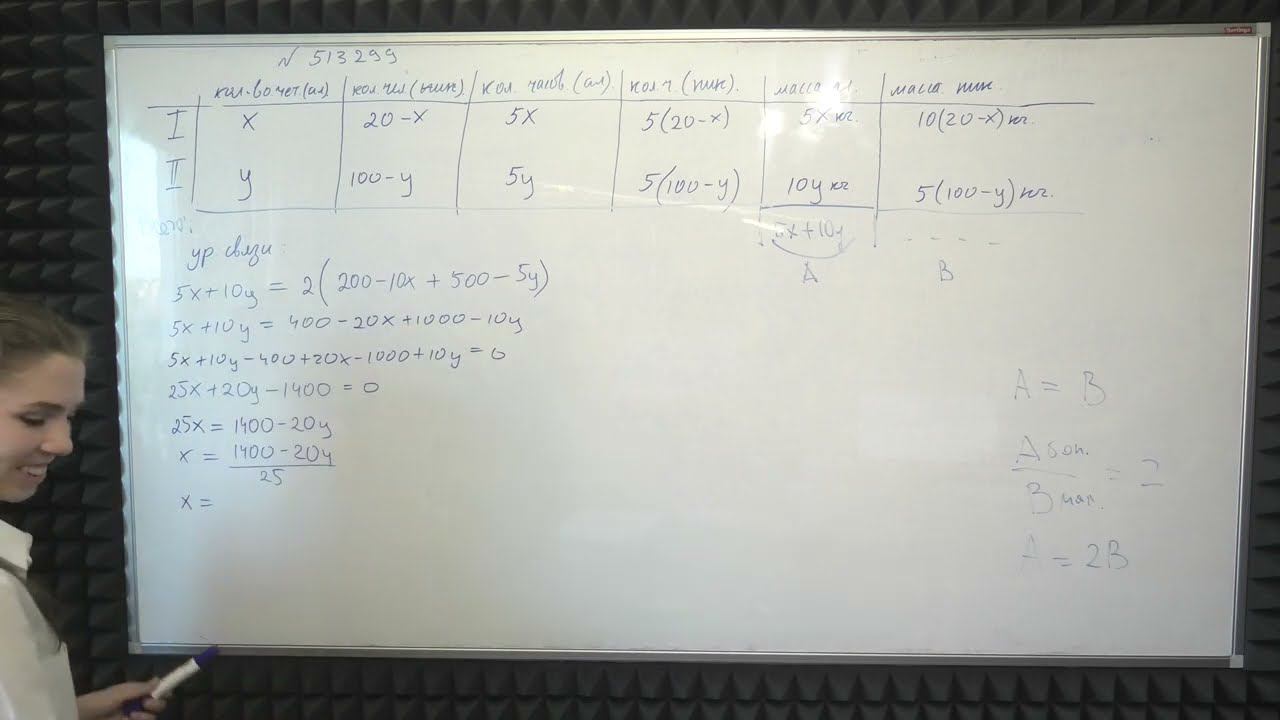 № 513299
кол-во чел.(ал) кол чел (ник) кол. часов.(ал). кол ч. (ник). масса ал. масса ник.
I x 20-x 5x 5(20-x) 5x кг. 10(20-x) кг.
II y 100-y 5y 5(100-y) 10y кг 5(100-y) кг.
5x+10y - - - -
A B
ур связи:
5x+10y = 2(200-10x + 500-5y)
5x+10y = 400-20x+1000-10y
5x+10y-400+20x-1000+10y=0
25x+20y-1400=0
25x=1400-20y
x = 1400-20y
25
x =
A = B
A бол.
= 2
B мал.
A = 2B